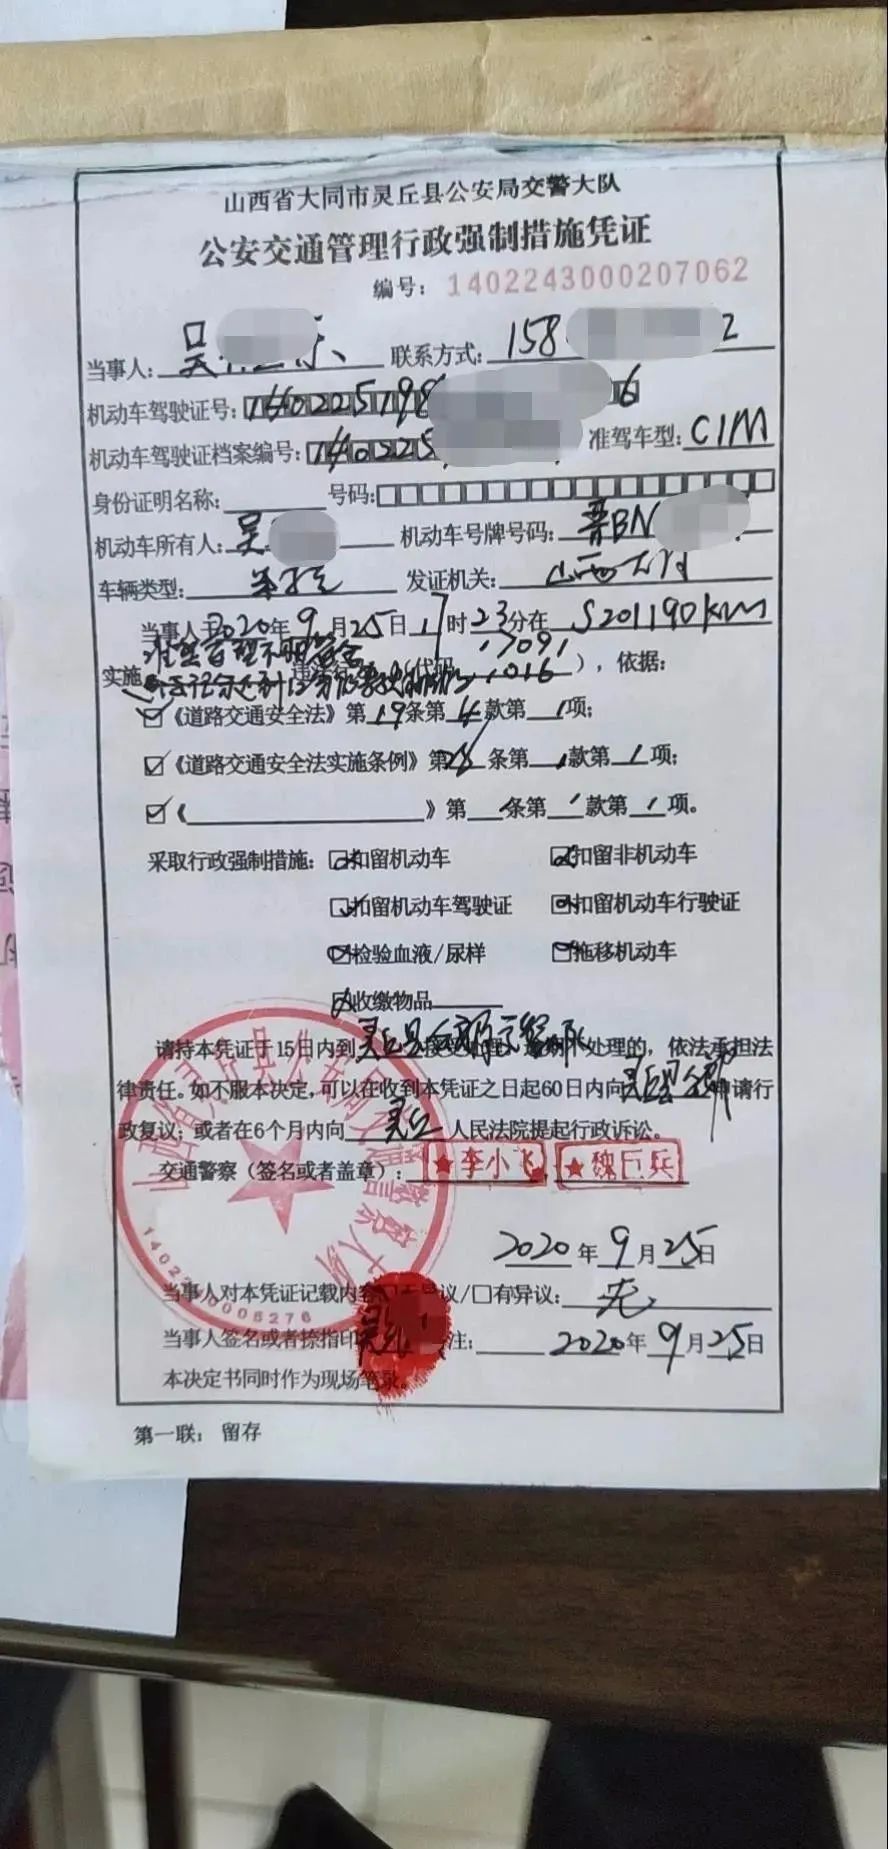 山西省大同市灵丘县公安局交警大队
公安交通管理行政强制措施凭证
编号：1402243000207062
当事人：吴 联系方式：158 2
机动车驾驶证号：140225198 6
机动车驾驶证档案编号：140225 准驾车型：C1M
身份证明名称： 号码：
机动车所有人：吴 机动车号牌号码：晋BN
车辆类型： 发证机关：山西大同
当事人于2020年9月25日17时23分在S201190KM
准驾车型不明符合 17091
实施 违法行为（代码 1016），依据：
☑《道路交通安全法》第19条第4款第1项；
☑《道路交通安全法实施条例》第28条第1款第1项；
☑《 》第 条第1款第1项。
采取行政强制措施： 扣留机动车 扣留非机动车
扣留机动车驾驶证 扣留机动车行驶证
检验血液/尿样 拖移机动车
收缴物品
请持本凭证于15日内到灵丘县 处理的，依法承担法
律责任。如不服本决定，可以在收到本凭证之日起60日内向灵丘县 申请行
政复议；或者在6个月内向灵丘人民法院提起行政诉讼。
交通警察（签名或者盖章）：★李小飞 ★魏巨兵
2020年9月25日
当事人对本凭证记载内容 无异议/□有异议：无
当事人签名或者捺指印 注： 2020年9月25日
本决定书同时作为现场笔录。
第一联：留存